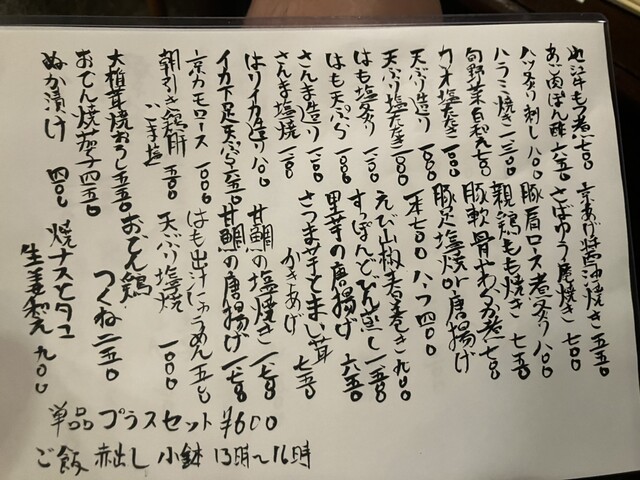 近江牛もつ煮 七〇〇
あん肝ぽん酢 六五〇
ハツ炙り刺し 八〇〇
ハラミ焼き 一三〇〇
旬野菜白和え 七〇〇
カツオ塩たたき 一〇〇〇
天ぷり造り 一〇〇〇
天ぷり塩たたき 一〇〇〇
はも塩炙り 一〇〇〇
はも天ぷら 一〇〇〇
さんま造り 一〇〇〇
さんま塩焼 一〇〇〇
はりイカ造り 八〇〇
イカ下足天ぷら 五五〇
京カモロース 一〇〇〇
朝引き鶏肝ごま塩 五〇〇
大椎茸焼おろし 五五〇
おでん焼茄子 四五〇
ぬか漬け 四〇〇
京あげ醤油焼き 五五〇
さばゆう庵焼き 七〇〇
豚肩ロース煮炙り 八〇〇
親鶏もも焼き 七五〇
豚軟骨やわらか煮 七〇〇
豚足塩焼or唐揚げ
一本 七〇〇 ハーフ 四〇〇
えび山椒春巻き 九〇〇
すっぽんどびん蒸し 一五〇〇
里芋の唐揚げ 六五〇
さつま芋とまい茸
かきあげ 七五〇
甘鯛の塩焼き 一八〇〇
甘鯛の唐揚げ 一八〇〇
はも出汁にゅうめん 五五〇
天ぷり塩焼 一〇〇〇
おでん鶏
つくね 二五〇
焼ナスとタコ
生姜和え 九〇〇
単品プラスセット ¥600
ご飯 赤出し 小鉢 13時〜16時